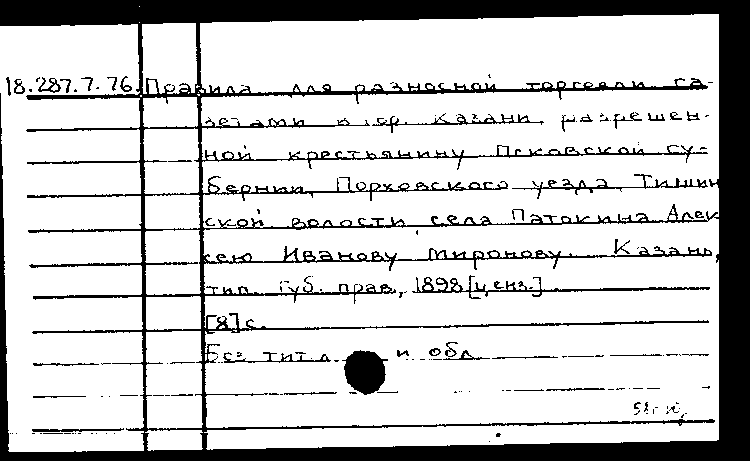 18.287.7.76. Правила для разносной торговли га-
зетами в гор. Казани, разрешен-
ной крестьянину Псковской гу-
бернии, Порховского уезда, Тишин
ской волости, села Патакина Алек
сею Иванову Миронову. Казань,
тип. Губ. прав., 1898 [ценз.]
[8] с.
Без тит. л. и обл.